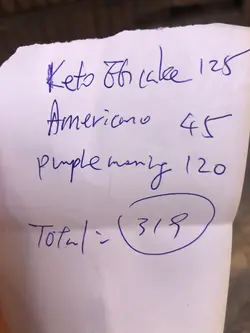 Keto Shake 125
Americano 45
purple morning 120
Total = 319